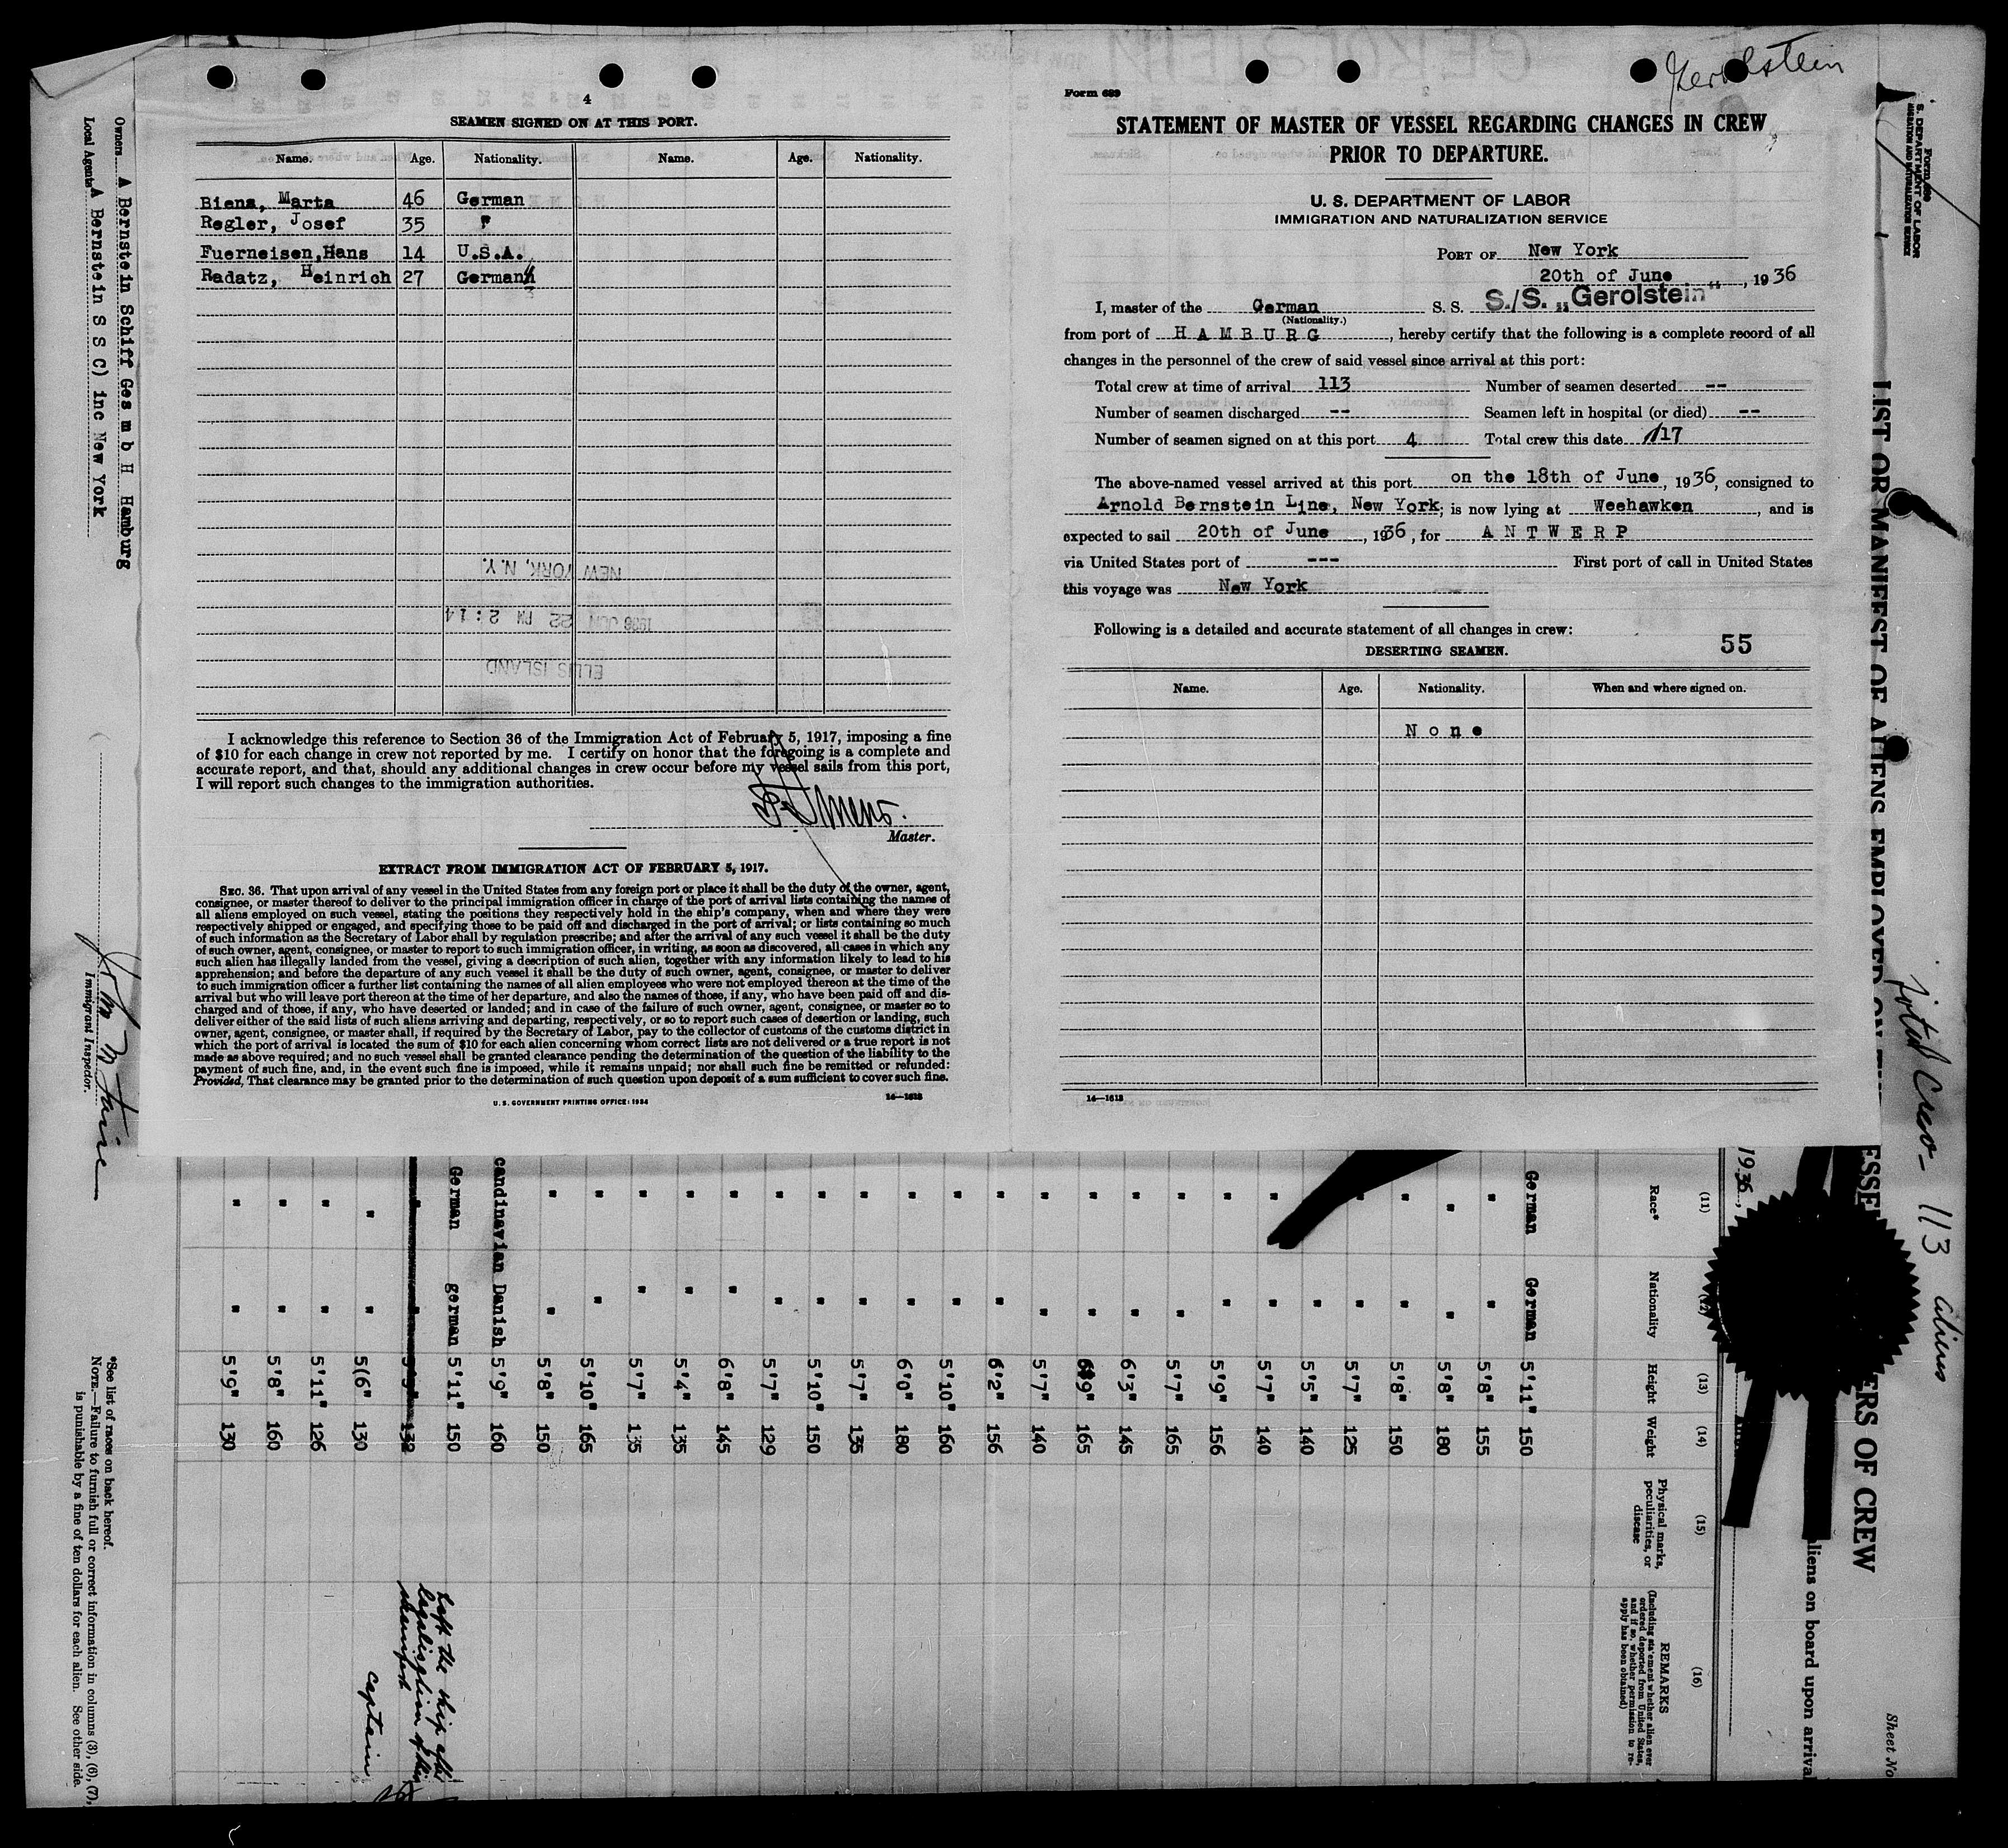 4
SEAMEN SIGNED ON AT THIS PORT.
Name. Age. Nationality. Name. Age. Nationality.
Biena, Marta 46 German
Regler, Josef 35 "
Fuerneisen, Hans 14 U.S.A.
Radatz, Heinrich 27 German
NEW YORK, N.Y.
1936 JUN 22 PM 2:14
ELLIS ISLAND
I acknowledge this reference to Section 36 of the Immigration Act of February 5, 1917, imposing a fine
of $10 for each change in crew not reported by me. I certify on honor that the foregoing is a complete and
accurate report, and that, should any additional changes in crew occur before my vessel sails from this port,
I will report such changes to the immigration authorities.
Master.
EXTRACT FROM IMMIGRATION ACT OF FEBRUARY 5, 1917.
SEC. 36. That upon arrival of any vessel in the United States from any foreign port or place it shall be the duty of the owner, agent,
consignee, or master thereof to deliver to the principal immigration officer in charge of the port of arrival lists containing the names of
all aliens employed on such vessel, stating the positions they respectively hold in the ship's company, when and where they were
respectively shipped or engaged, and specifying those to be paid off and discharged in the port of arrival; or lists containing so much
of such information as the Secretary of Labor shall by regulation prescribe; and after the arrival of any such vessel it shall be the duty
of such owner, agent, consignee, or master to report to such immigration officer, in writing, as soon as discovered, all cases in which any
such alien has illegally landed from the vessel, giving a description of such alien, together with any information likely to lead to his
apprehension; and before the departure of any such vessel it shall be the duty of such owner, agent, consignee, or master to deliver
to such immigration officer a further list containing the names of all alien employees who were not employed thereon at the time of the
arrival but who will leave port thereon at the time of her departure, and also the names of those, if any, who have been paid off and dis-
charged and of those, if any, who have deserted or landed; and in case of the failure of such owner, agent, consignee, or master so to
deliver either of the said lists of such aliens arriving and departing, respectively, or so to report such cases of desertion or landing, such
owner, agent, consignee, or master shall, if required by the Secretary of Labor, pay to the collector of customs of the customs district in
which the port of arrival is located the sum of $10 for each alien concerning whom correct lists are not delivered or a true report is not
made as above required; and no such vessel shall be granted clearance pending the determination of the question of the liability to the
payment of such fine, and, in the event such fine is imposed, while it remains unpaid; nor shall such fine be remitted or refunded:
Provided, That clearance may be granted prior to the determination of such question upon deposit of a sum sufficient to cover such fine.
U. S. GOVERNMENT PRINTING OFFICE: 1934 14—1613
Gerolstein
Form 689
STATEMENT OF MASTER OF VESSEL REGARDING CHANGES IN CREW
PRIOR TO DEPARTURE.
U. S. DEPARTMENT OF LABOR
IMMIGRATION AND NATURALIZATION SERVICE
PORT OF New York
20th of June, 1936
I, master of the German S. S. S./S. „Gerolstein"
(Nationality.)
from port of HAMBURG, hereby certify that the following is a complete record of all
changes in the personnel of the crew of said vessel since arrival at this port:
Total crew at time of arrival 113 Number of seamen deserted --
Number of seamen discharged -- Seamen left in hospital (or died) --
Number of seamen signed on at this port 4 Total crew this date 117
The above-named vessel arrived at this port on the 18th of June, 1936, consigned to
Arnold Bernstein Line, New York; is now lying at Weehawken, and is
expected to sail 20th of June, 1936, for ANTWERP
via United States port of --- First port of call in United States
this voyage was New York
Following is a detailed and accurate statement of all changes in crew:
55
DESERTING SEAMEN.
Name. Age. Nationality. When and where signed on.
None
14—1613
Form 689
S. DEPARTMENT OF LABOR
IMMIGRATION AND NATURALIZATION SERVICE
LIST OR MANIFEST OF ALIENS EMPLOYED ON
ESSE ERS OF CREW
Total Crew – 113 aliens
Sheet No
aliens on board upon arrival
1936,
(11) (12) (13) (14) (15) (16)
Race* Nationality Height Weight Physical marks, peculiarities, or disease REMARKS
(Including statement whether alien ever ordered deported from United States, and if so, whether permission to reapply has been obtained)
German German 5'11" 150
" " 5'8" 155
" " 5'8" 180
" " 5'8" 150
" " 5'7" 125
" 5'5" 140
" " 5'7" 140
" " 5'9" 156
" " 5'7" 165
" " 6'3" 145
" " 9" 165
" " 5'7" 140
" " 6'2" 156
" " 5'10" 160
" " 6'0" 180
" " 5'7" 135
" " 5'10" 150
" " 5'7" 129
" " 6'8" 145
" " 5'4" 135
" " 5'7" 135
" " 5'10" 165
" " 5'8" 150
candinavian Danish 5'9" 160
German german 5'11" 150
132
Left the ship after
legalisation of the
manifest
captain
" " 5(6" 130
" " 5'11" 126
" " 5'8" 160
" " 5'9" 130
*See list of races on back hereof.
NOTE.—Failure to furnish full or correct information in columns (3), (6), (7),
is punishable by a fine of ten dollars for each alien. See other side.
Owners A Bernstein Schiff Ges m b H Hamburg
Local Agents A Bernstein S S C) inc New York
Immigrant Inspector.